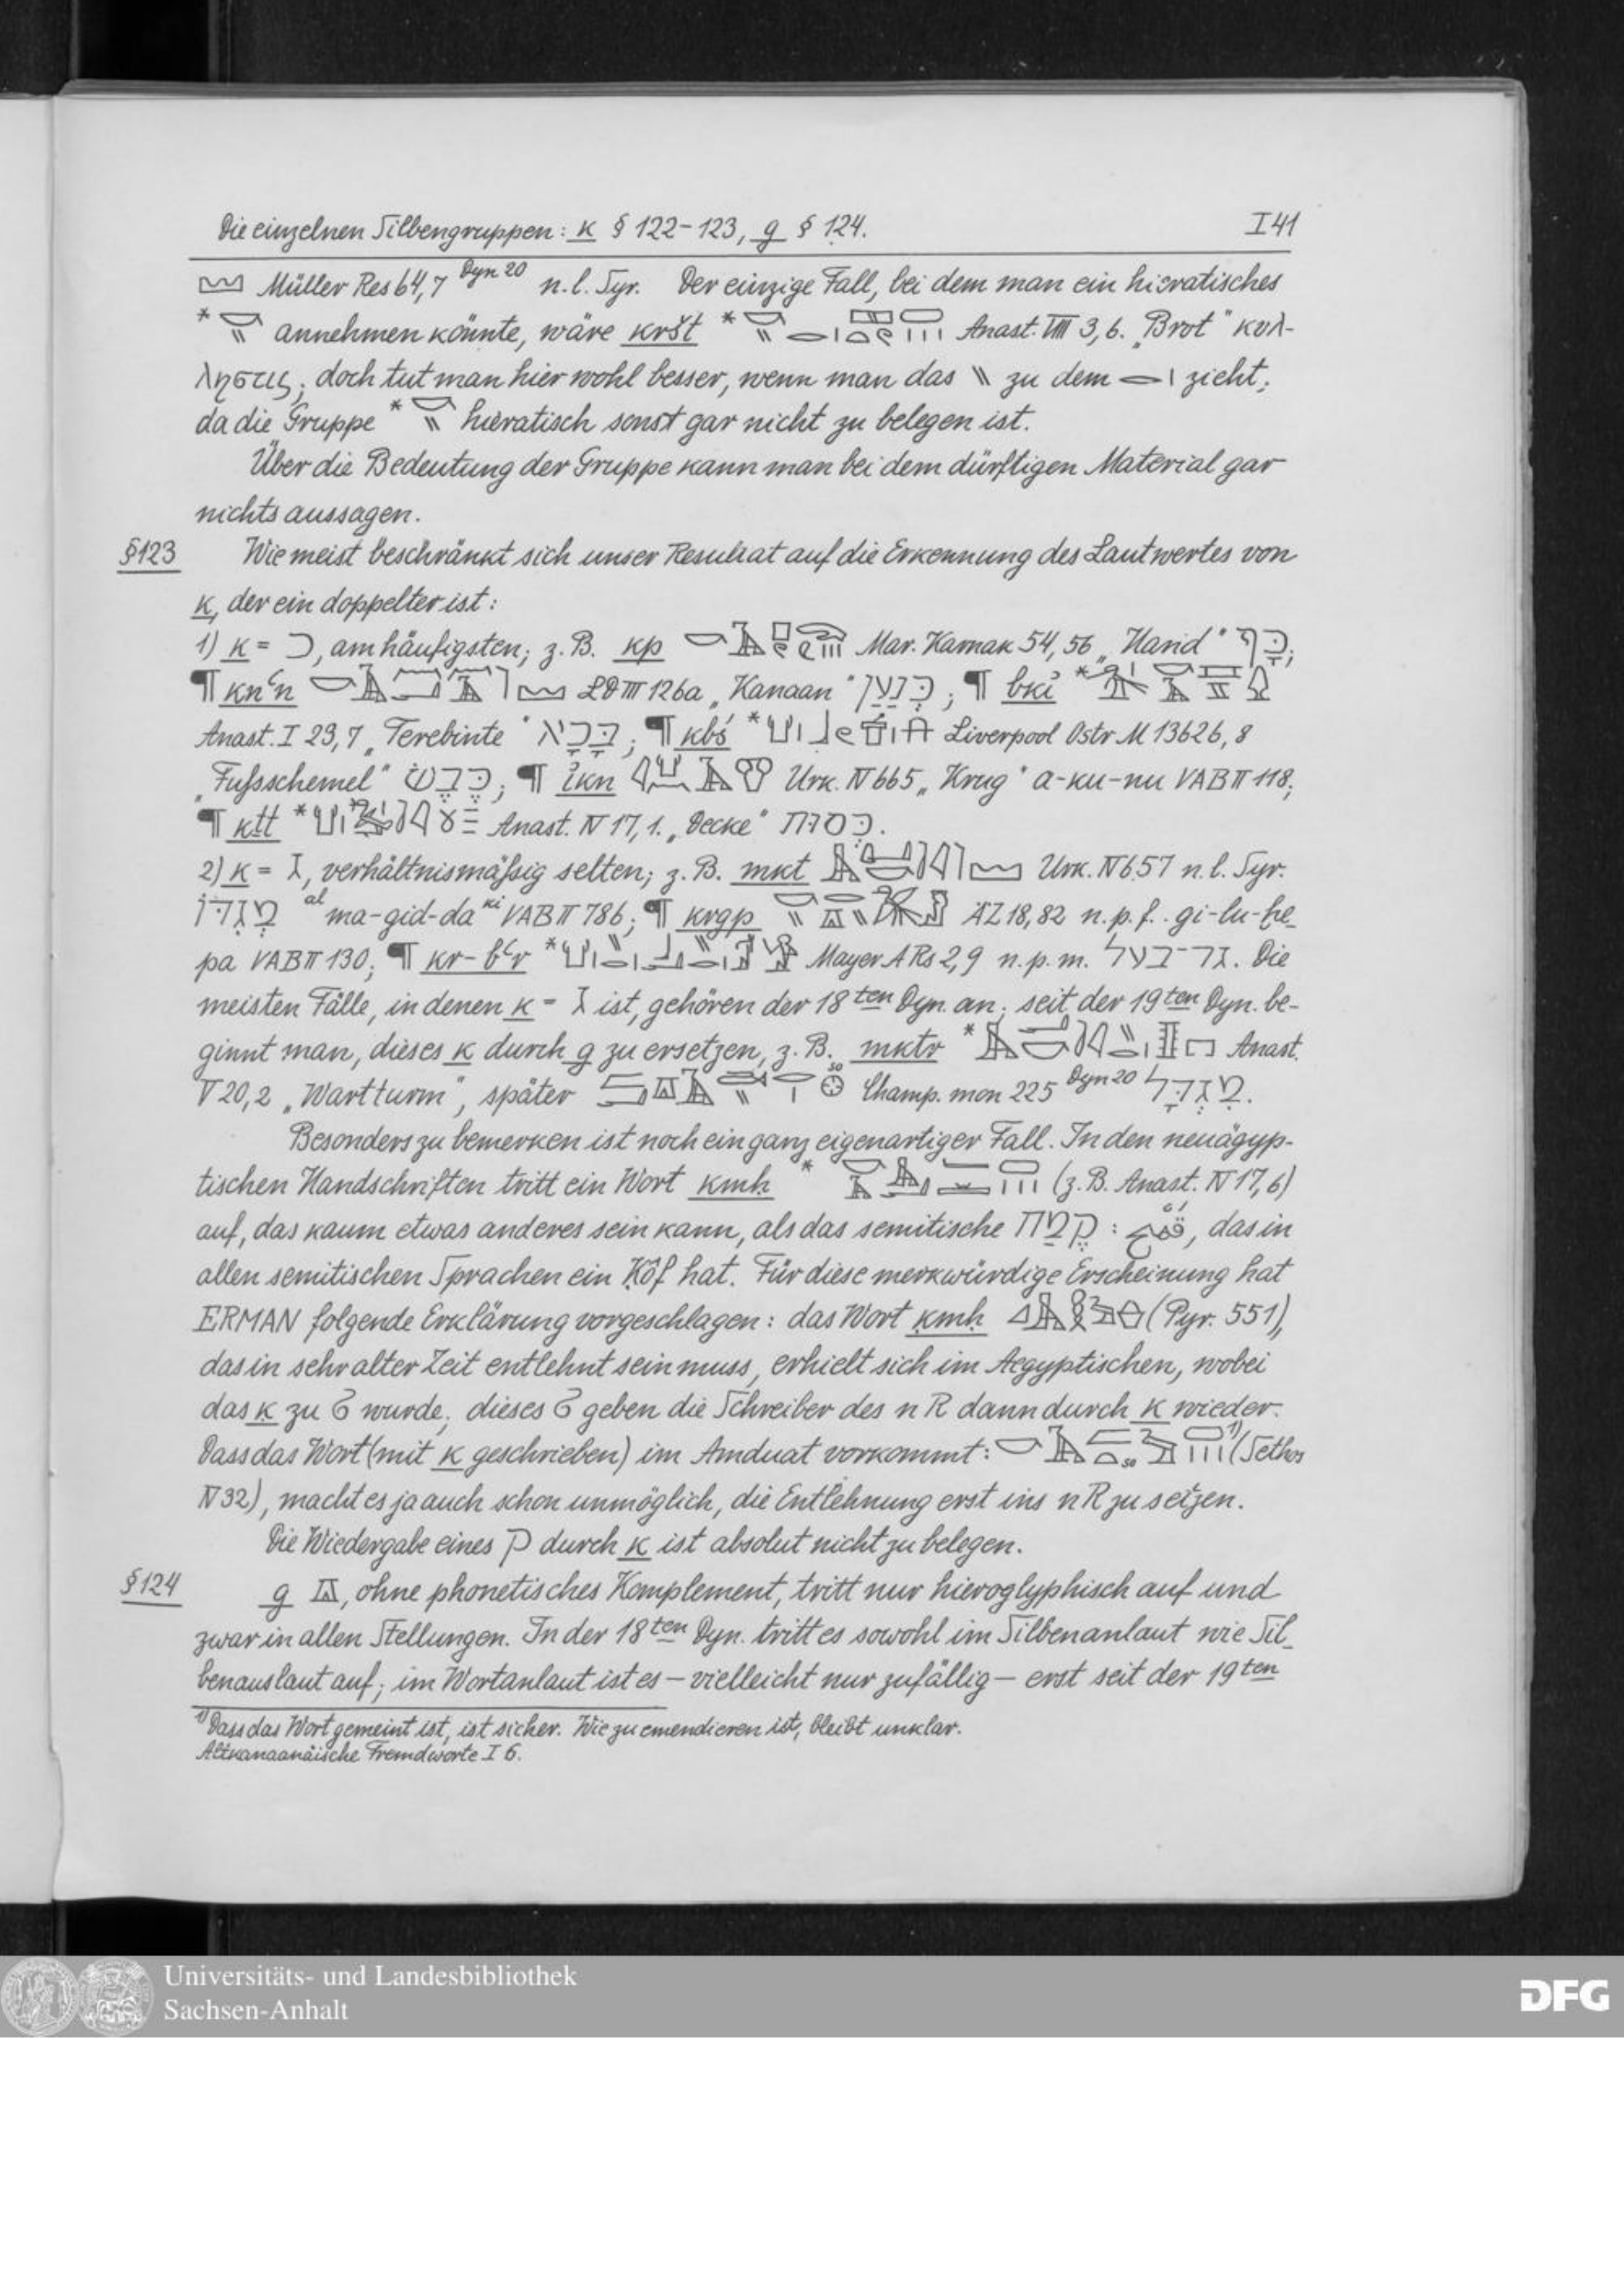 Die einzelnen Silbengruppen: k § 122-123, g § 124. I 41
Müller Res 64,7 Dyn 20 n. l. Syr. Der einzige Fall, bei dem man ein hieratisches
* annehmen könnte, wäre kršt * Anast. VIII 3,6. „Brot“ κυλ-
ληστις; doch tut man hier wohl besser, wenn man das \\ zu dem zieht;
da die Gruppe * hieratisch sonst gar nicht zu belegen ist.
Über die Bedeutung der Gruppe kann man bei dem dürftigen Material gar
nichts aussagen.
§123 Wie meist beschränkt sich unser Resultat auf die Erkennung des Lautwertes von
k, der ein doppelter ist:
1) k = כ, am häufigsten; z. B. kp Mar. Karnak 54, 56 „Hand“ כַּף;
¶ knʿn LD III 126a „Kanaan“ כְּנַעַן; ¶ bkı͗ *
Anast. I 23,7 „Terebinte“ בָּכָא; ¶ kbś * Liverpool Ostr M 13626, 8
„Fußschemel“ כֶּבֶשׂ; ¶ ı͗kn Urk. IV 665 „Krug“ a-ku-nu VAB II 118;
¶ kṯt * Anast. IV 17, 1. „Decke“ כְּסוּת.
2) k = ג, verhältnismäßig selten; z. B. mkt Urk. IV 657 n. l. Syr.
מְגִדּוֹ al ma-gid-da ki VAB II 786; ¶ krgp ÄZ 18, 82 n. p. f. gi-lu-ḫe-
pa VAB II 130; ¶ kr-bʿr * Mayer A Rs 2,9 n. p. m. גר־בעל. Die
meisten Fälle, in denen k = ג ist, gehören der 18ten Dyn. an; seit der 19ten Dyn. be-
ginnt man, dieses k durch g zu ersetzen, z. B. mktr * Anast.
V 20,2 „Wartturm“, später so Champ. mon 225 Dyn 20 מִגְדָּל.
Besonders zu bemerken ist noch ein ganz eigenartiger Fall. In den neuägyp-
tischen Handschriften tritt ein Wort kmḥ * (z. B. Anast. IV 17, 6)
auf, das kaum etwas anderes sein kann, als das semitische קֶמַח : قمح, das in
allen semitischen Sprachen ein Ḳôf hat. Für diese merkwürdige Erscheinung hat
ERMAN folgende Erklärung vorgeschlagen: das Wort ḳmḥ (Pyr. 551),
das in sehr alter Zeit entlehnt sein muss, erhielt sich im Aegyptischen, wobei
das ḳ zu ϭ wurde; dieses ϭ geben die Schreiber des n R dann durch k wieder.
Dass das Wort (mit k geschrieben) im Amduat vorkommt: so 1) (Sethos
IV 32), macht es ja auch schon unmöglich, die Entlehnung erst ins n R zu setzen.
Die Wiedergabe eines ק durch k ist absolut nicht zu belegen.
§124 g, ohne phonetisches Komplement, tritt nur hieroglyphisch auf und
zwar in allen Stellungen. In der 18ten Dyn. tritt es sowohl im Silbenanlaut wie Sil-
benauslaut auf; im Wortanlaut ist es – vielleicht nur zufällig – erst seit der 19ten
1) Dass das Wort gemeint ist, ist sicher. Wie zu emendieren ist, bleibt unklar.
Altkanaanäische Fremdworte I 6.
Universitäts- und Landesbibliothek
Sachsen-Anhalt
DFG